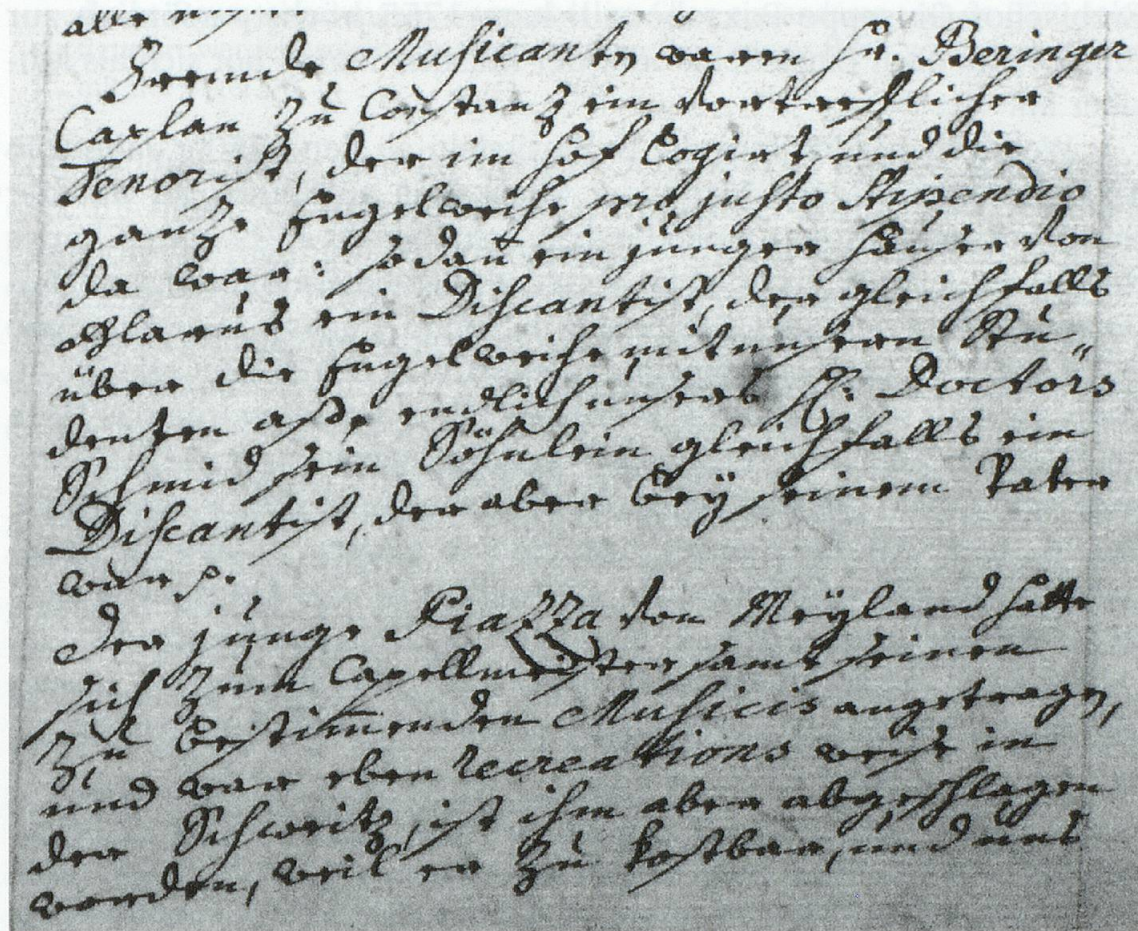 alle
Fremde Musicanten waren Hr. Beringer
Caplan zu Costanz ein vortrefflicher
Tenorist, der im Hof logirt, und die
ganze Engelweihe pro justo stipendio
da war: sodañ ein junger Hauser von
Glarus ein Discantist, der gleichfalls
über die Engelweihe mit unsern Stu„
denten aße, endlich unsers H: Doctors
Schmid sein Söhnlein gleichfalls ein
Discantist, der aber beÿ seinem Vater
war p.
Der junge Piazza von Meÿland hatte
sich zum Capellmeister samt seinen
zu bestim̄enden Musicis angetragen,
und war eben recreations weise in
der Schweitz, ist ihm aber abgeschlagen
worden, weil er zu kostbar, und uns